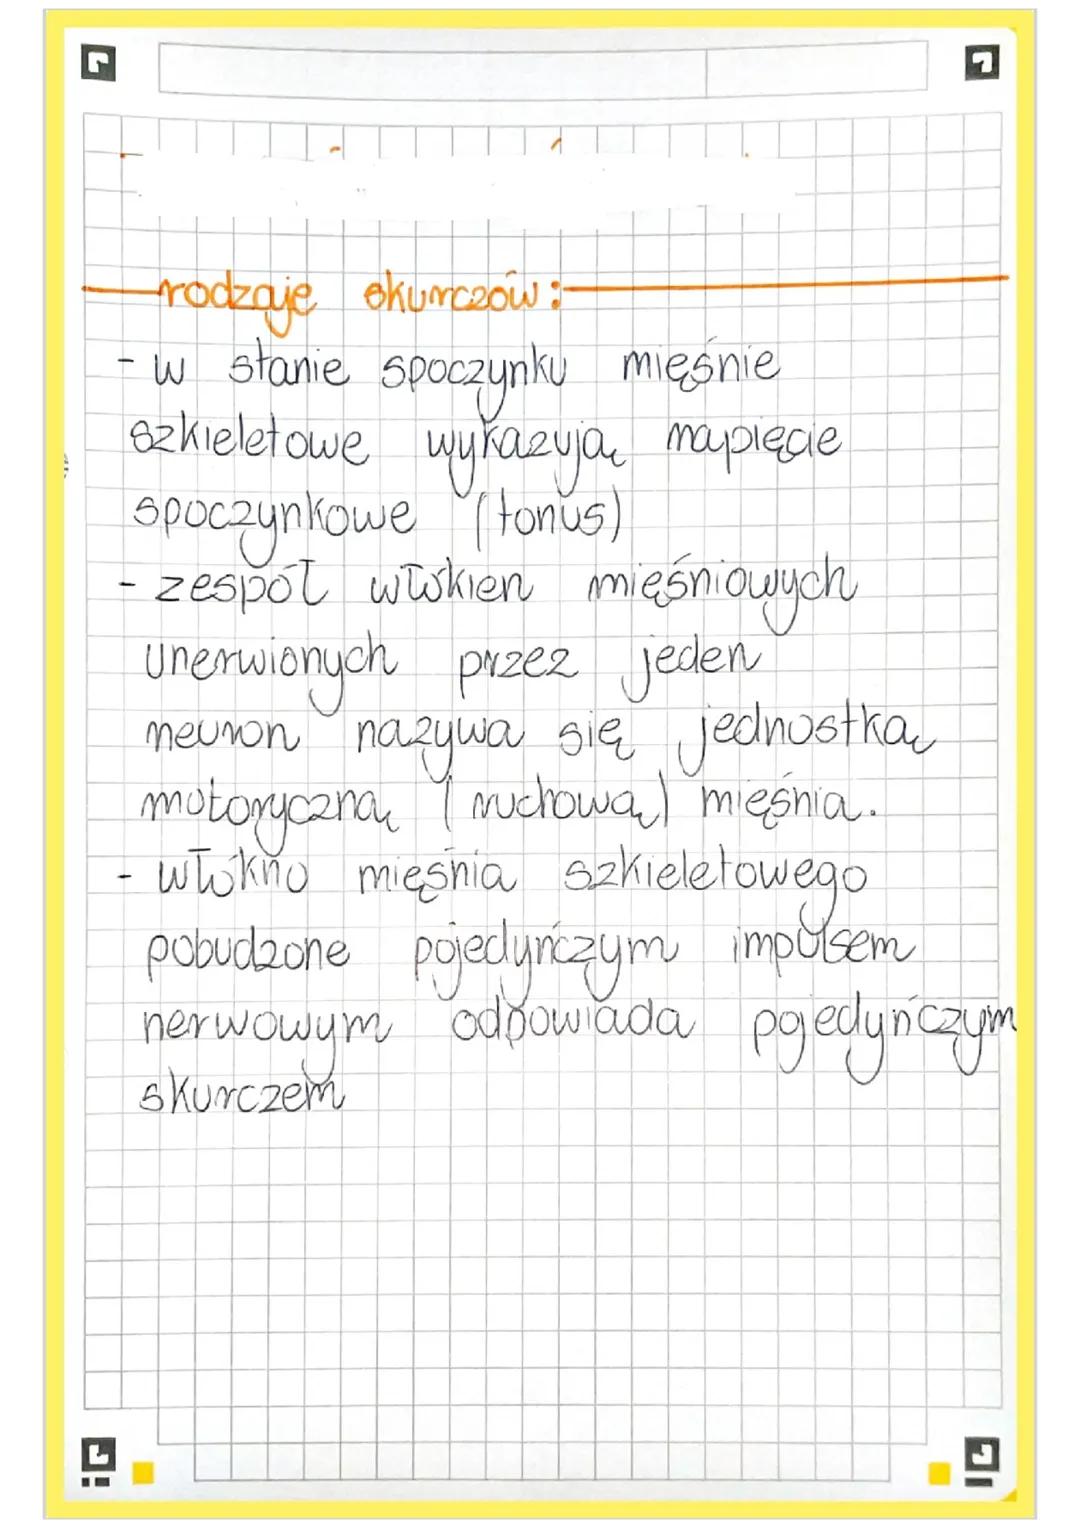 rodzaje skurczów:
- w stanie spoczynku mięśnie
szkieletowe wykazują napięcie
spoczynkowe (tonus)
- zespół włókien mięśniowych
unerwionych przez jeden
neuron nazywa się jednostką
motoryczną (ruchową) mięśnia.
- włókno mięśnia szkieletowego
pobudzone pojedyńczym impulsem
nerwowym odpowiada pojedyńczym
skurczem